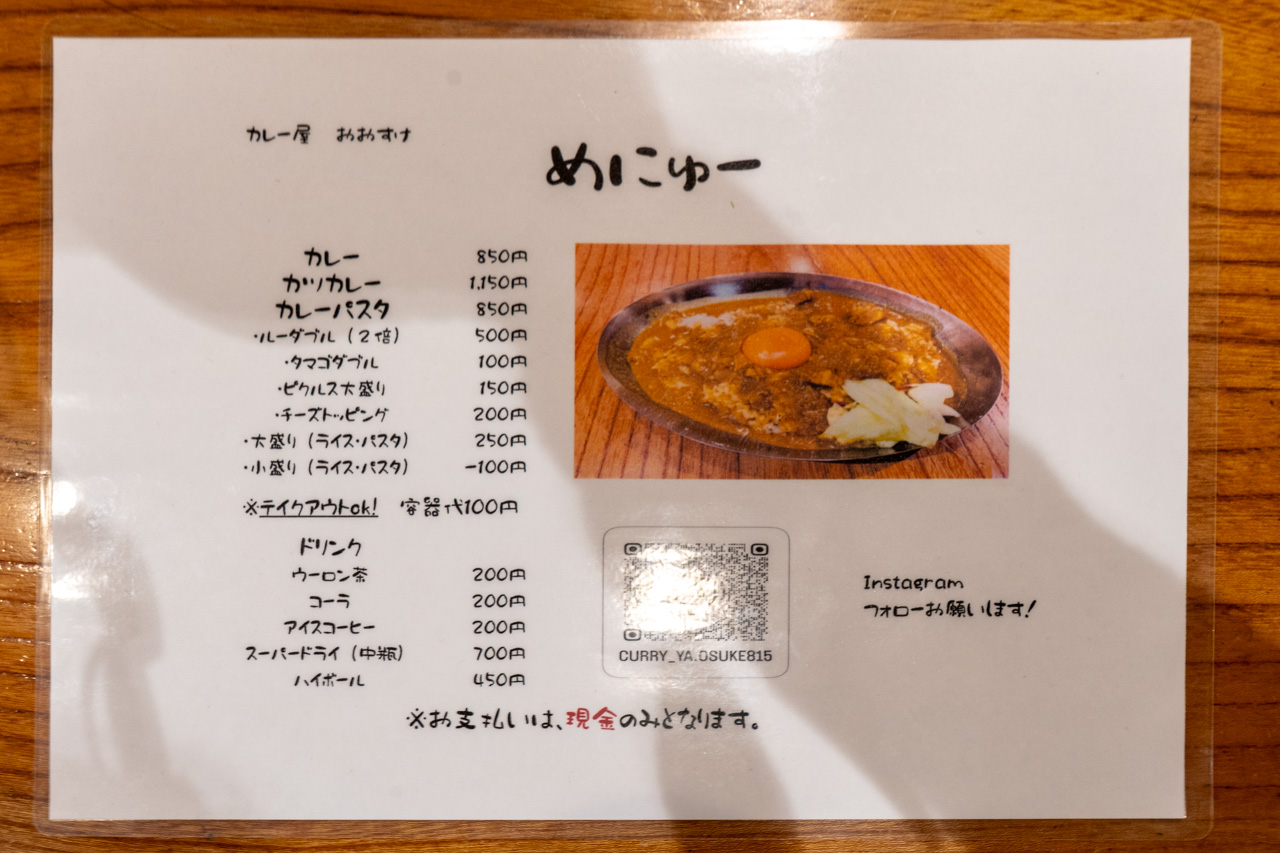 カレー屋 おおすけ
めにゅー
カレー 850円
カツカレー 1,150円
カレーパスタ 850円
・ルーダブル（２倍） 500円
・タマゴダブル 100円
・ピクルス大盛り 150円
・チーズトッピング 200円
・大盛り（ライス・パスタ） 250円
・小盛り（ライス・パスタ） －100円
※テイクアウトok! 容器代100円
ドリンク
ウーロン茶 200円
コーラ 200円
アイスコーヒー 200円
スーパードライ（中瓶） 700円
ハイボール 450円
CURRY_YA.OSUKE815
Instagram
フォローお願いします!
※お支払いは、現金のみとなります。